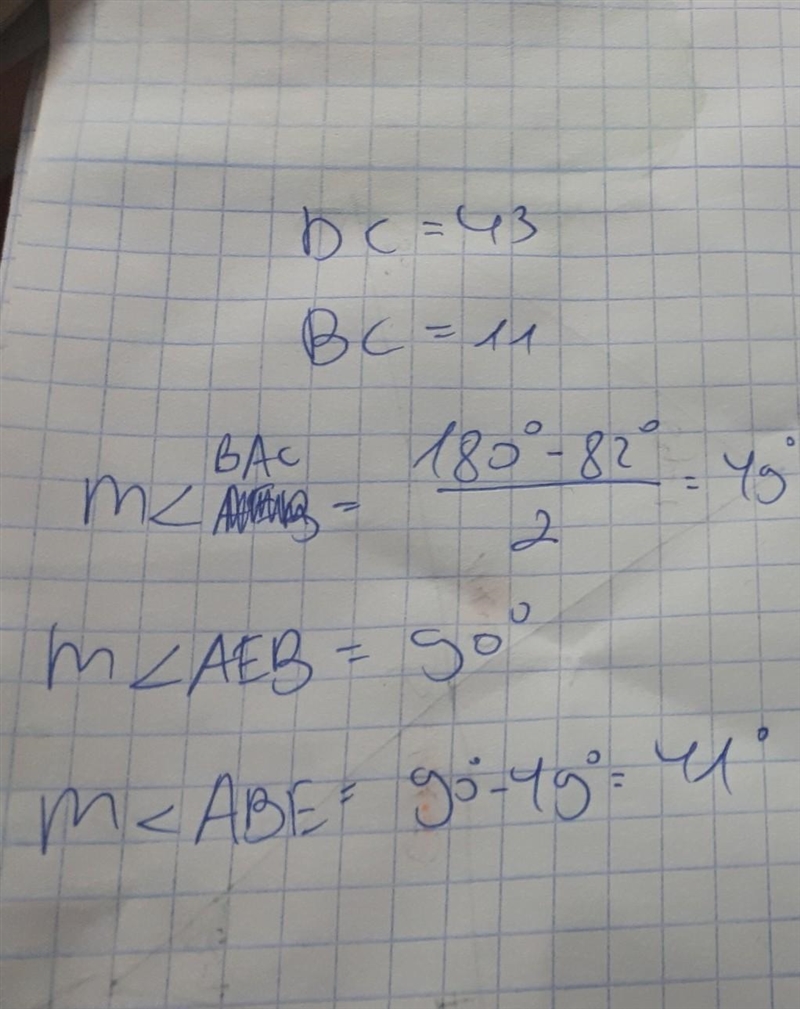 DC = 43
BC = 11
m< BAC = 180° - 82° / 2 = 49°
m< AEB = 90°
m< ABE = 90° - 49° = 41°